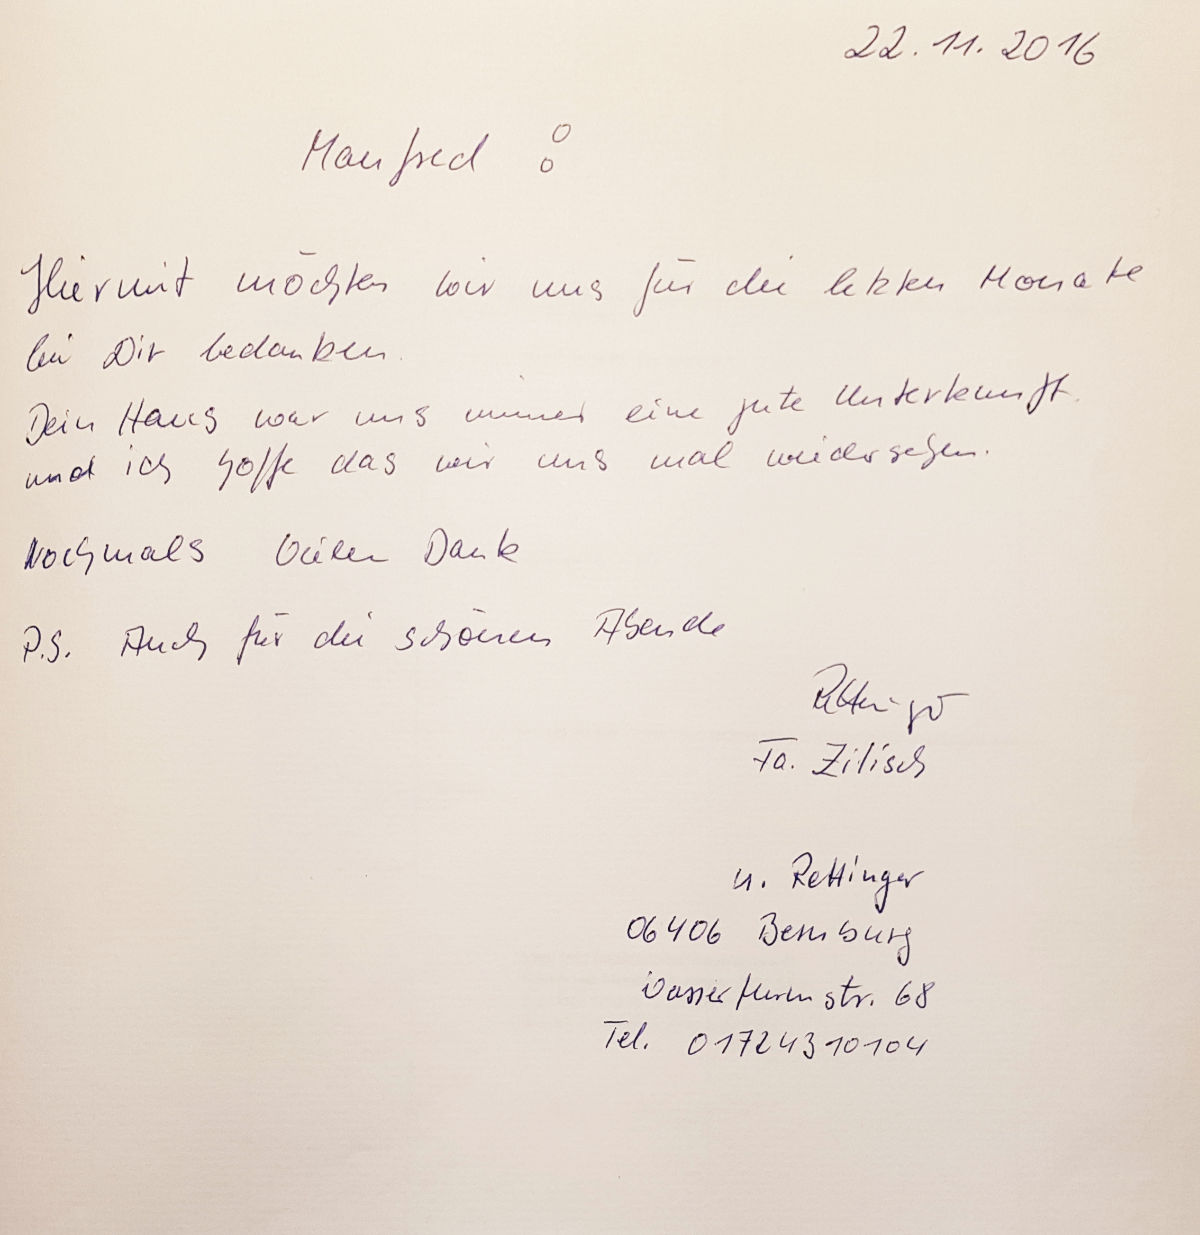 22.11.2016
Manfred :
Hiermit möchten wir uns für die letzten Monate
bei Dir bedanken.
Dein Haus war uns immer eine gute Unterkunft.
und ich hoffe das wir uns mal wiedersehen.
Nochmals Vielen Dank
P.S. Auch für die schönen Abende
Rettinger
Fa. Zilisch
u. Rettinger
06406 Bernburg
Wasserturmstr. 68
Tel. 01724310104